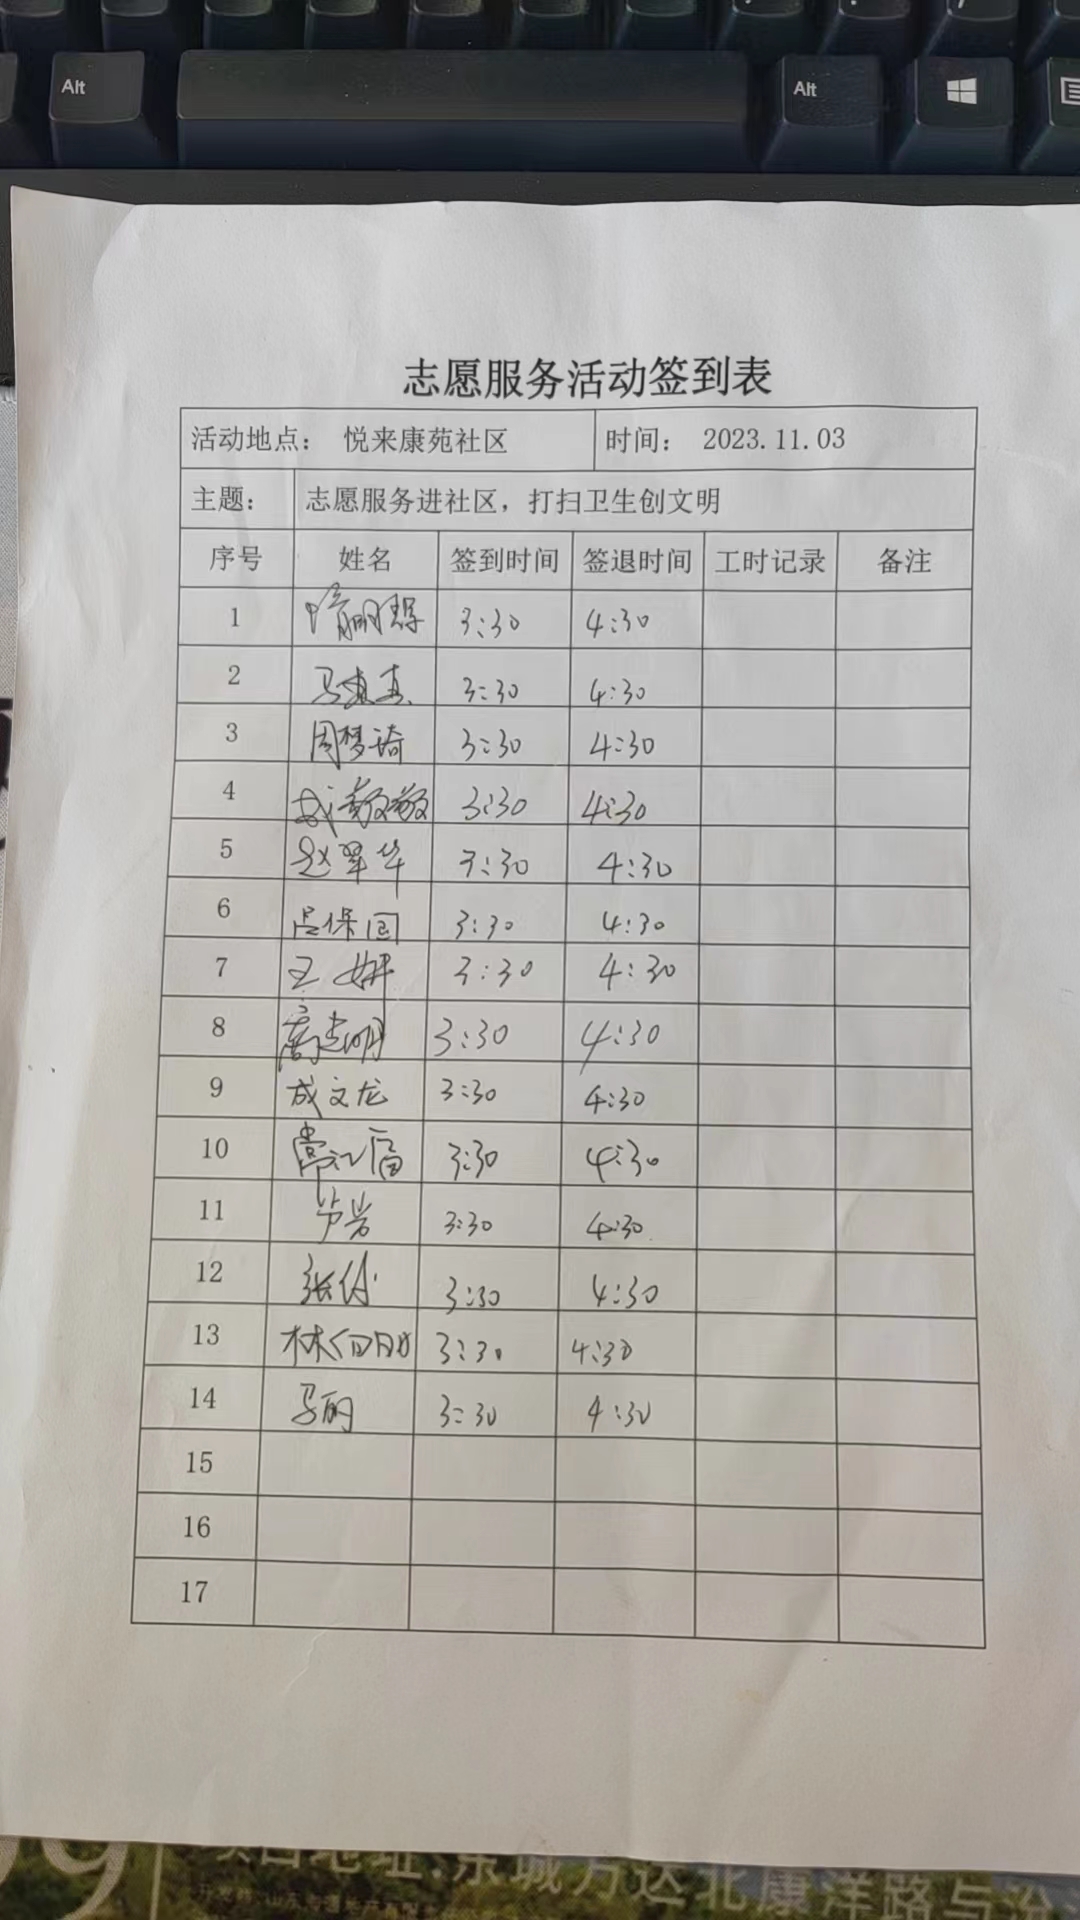 Alt
Alt
志愿服务活动签到表
活动地点： 悦来康苑社区 时间： 2023.11.03
主题： 志愿服务进社区，打扫卫生创文明
序号 姓名 签到时间 签退时间 工时记录 备注
1 3:30 4:30
2 马 3:30 4:30
3 周梦琦 3:30 4:30
4 成敬敬 3:30 4:30
5 赵翠华 3:30 4:30
6 吕保国 3:30 4:30
7 王妍 3:30 4:30
8 高志明 3:30 4:30
9 成文龙 3:30 4:30
10 常江富 3:30 4:30
11 芦岩 3:30 4:30
12 张倩 3:30 4:30
13 林 3:30 4:30
14 马丽 3:30 4:30
15
16
17
项目地址:东城万达北康洋路与汾